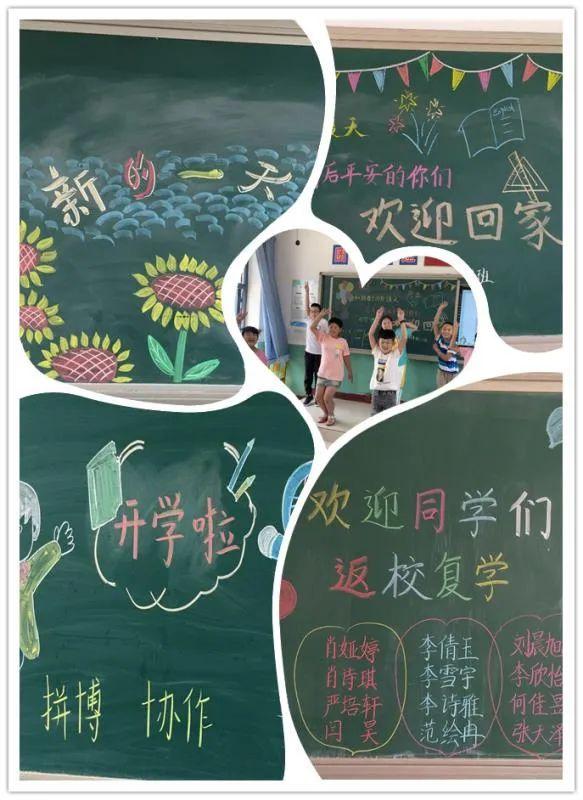 新的一天
天
后平安的你们
欢迎回家
班
English
开学啦
拼博 协作
欢迎同学们
返校复学
肖娅婷
肖诗琪
严培轩
闫昊
李倩玉
李雪宇
李诗雅
范绘冉
刘晨旭
李欣怡
何佳
张大